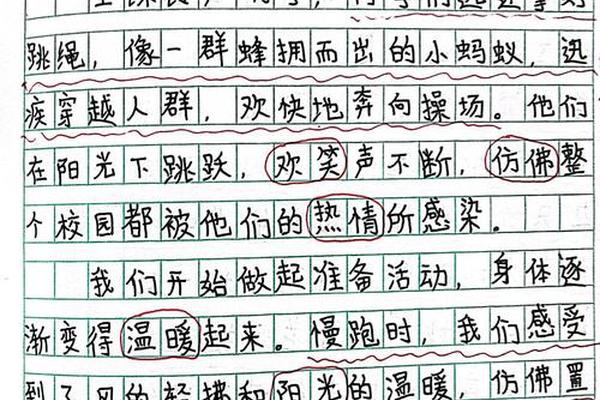 跳绳，像一群蜂拥而出的小蚂蚁，迅
疾穿越人群，欢快地奔向操场。他们
在阳光下跳跃，欢笑声不断，仿佛整
个校园都被他们的热情所感染。
我们开始做起准备活动，身体逐
渐变得温暖起来。慢跑时，我们感受
到了风的轻拂和阳光的温暖，仿佛置